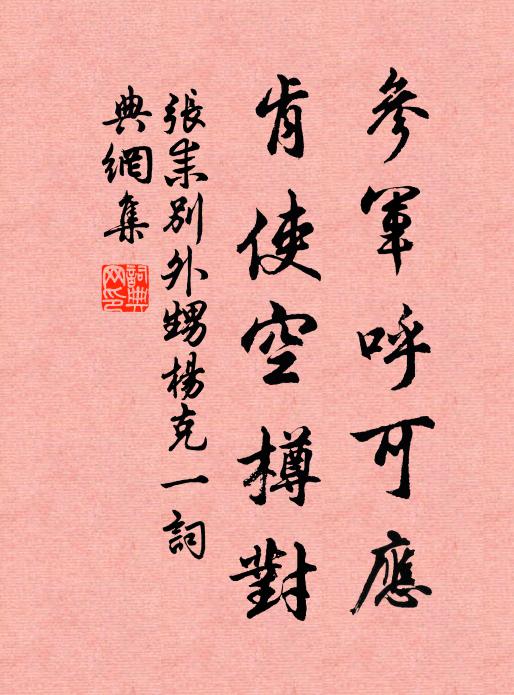 參軍呼可應
肯使空樽對
張耒別外甥楊克一詞
典網集
詞典网印